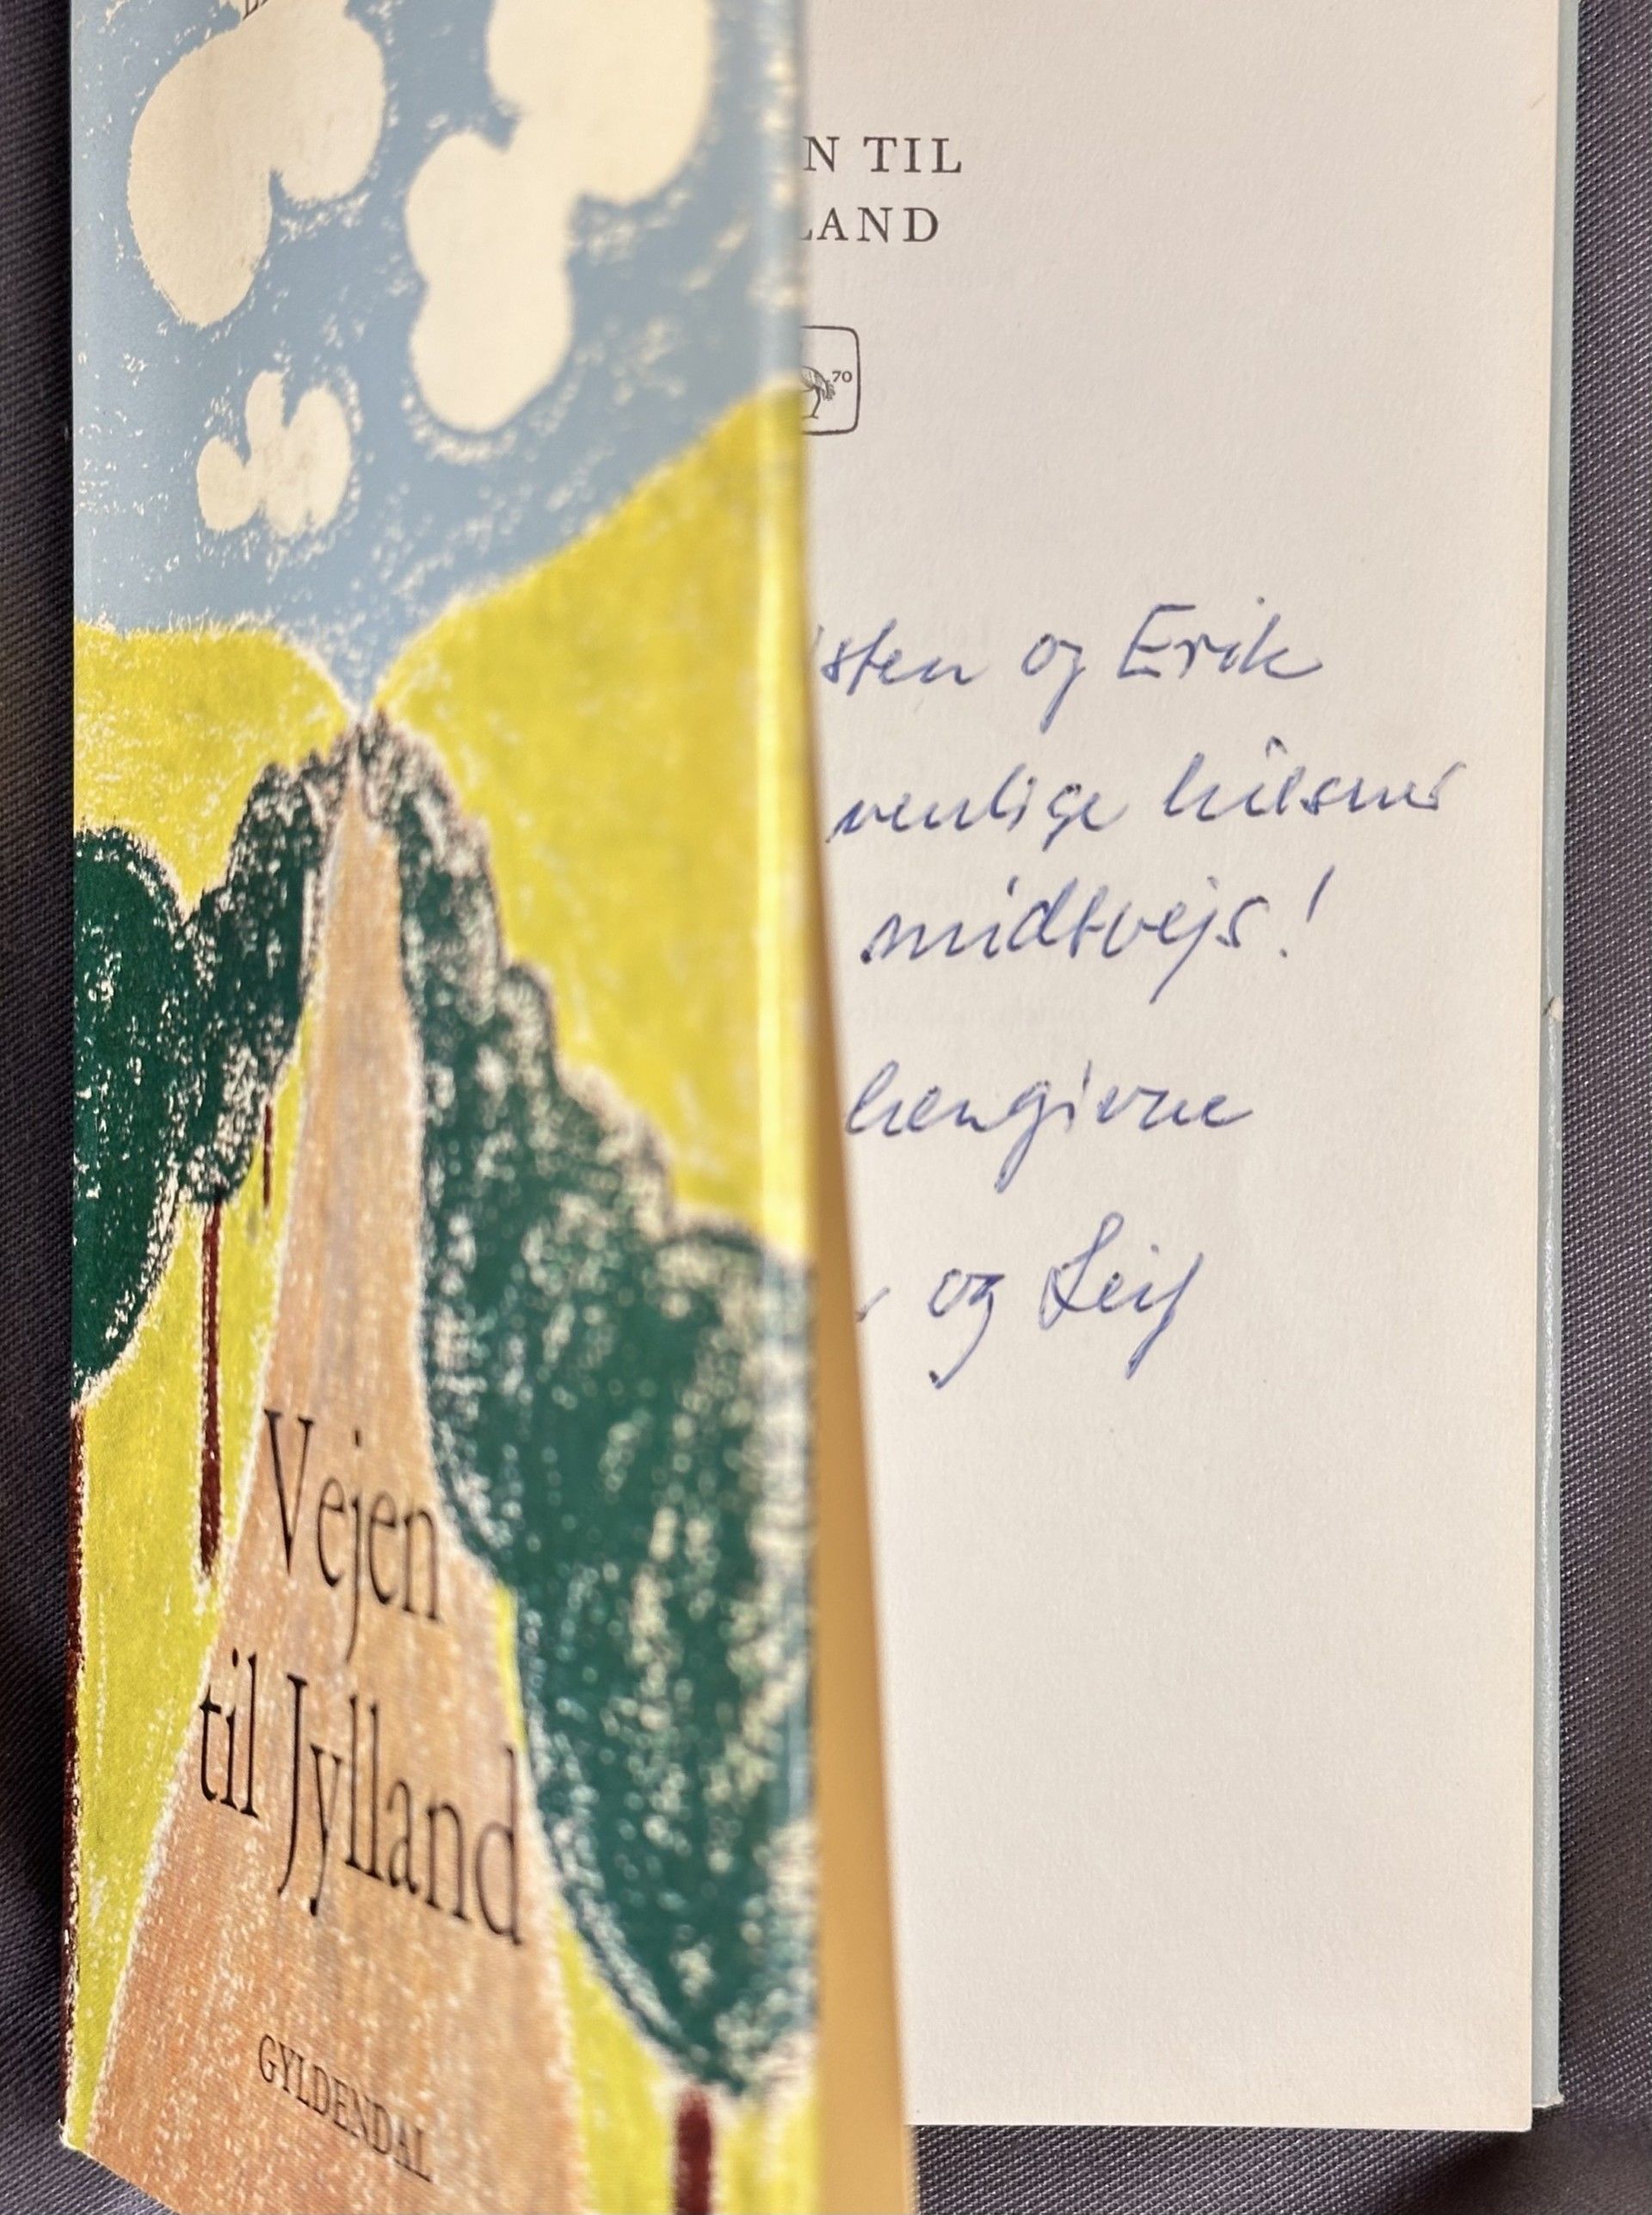 Vejen
til Jylland
GYLDENDAL
N TIL
LAND
70
sten og Erik
venlige hilsner
midtvejs!
hengivne
og Leif